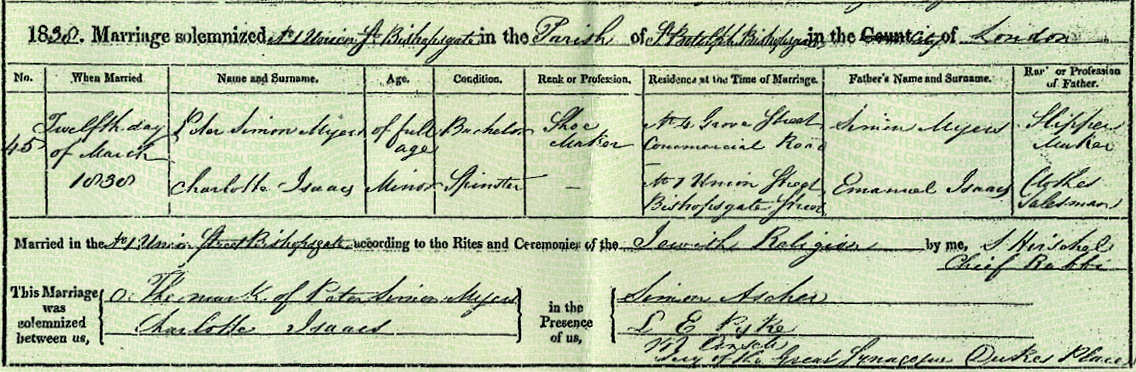 1838. Marriage solemnized at No 1 Union St Bishopsgate in the Parish of St Botolph Bishopsgate in the County City of London
No. When Married Name and Surname. Age. Condition. Rank or Profession. Residence at the Time of Marriage. Father's Name and Surname. Rank or Profession of Father.
45 Twelfth day of March 1838 Peter Simon Myers of full age Bachelor Shoe Maker No 4 Grove Street Commercial Road Simon Myers Slipper Maker
Charlotte Isaacs Minor Spinster – No 1 Union Street Bishopsgate Street Emanuel Isaacs Clothes Salesman
Married in the No 1 Union Street Bishopsgate according to the Rites and Ceremonies of the Jewish Religion by me, S Hirschel
Chief Rabbi
This Marriage was solemnized between us, O The mark of Peter Simon Myers
Charlotte Isaacs
in the Presence of us, Simon Ascher
L E Pyke
Secy of the Great Synagogue Dukes Place